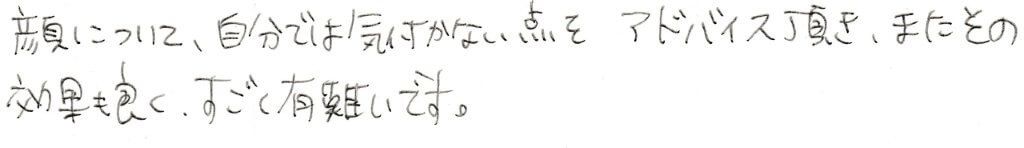 顔について、自分では気付かない点を アドバイス頂き、またその
効果も良く、すごく有難いです。